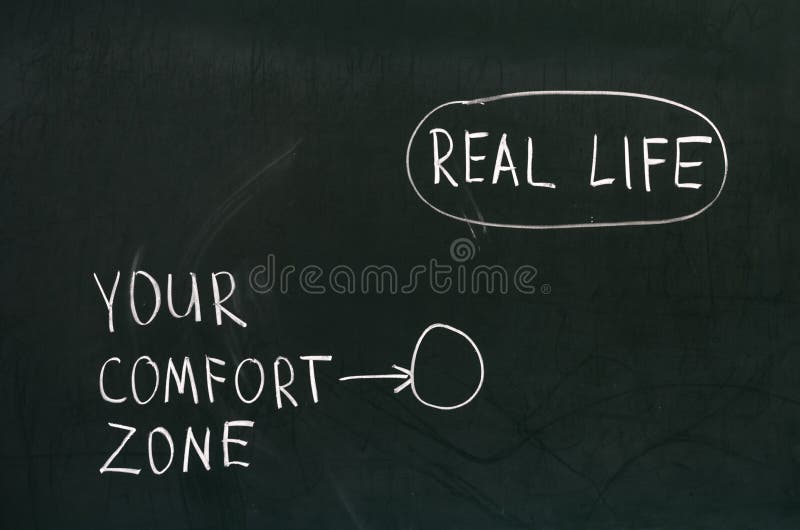 REAL LIFE
dreamstime
YOUR
COMFORT
ZONE